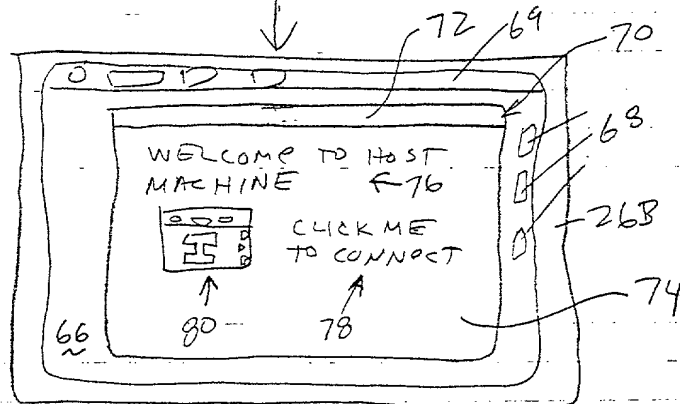 72 69 70
WELCOME TO HOST
MACHINE 76
68
CLICK ME
TO CONNECT
26B
74
66 80 78